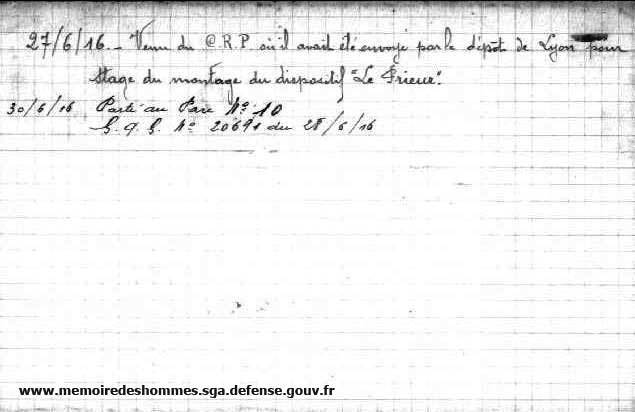 27/6/16. - Venu du C.R.P où il avait été envoyé par le dépôt de Lyon pour
stage du montage du dispositif "Le Prieur".
30/6/16 Parti au Parc N° 10
G. Q. G. N° 20691 du 28/6/16
www.memoiredeshommes.sga.defense.gouv.fr